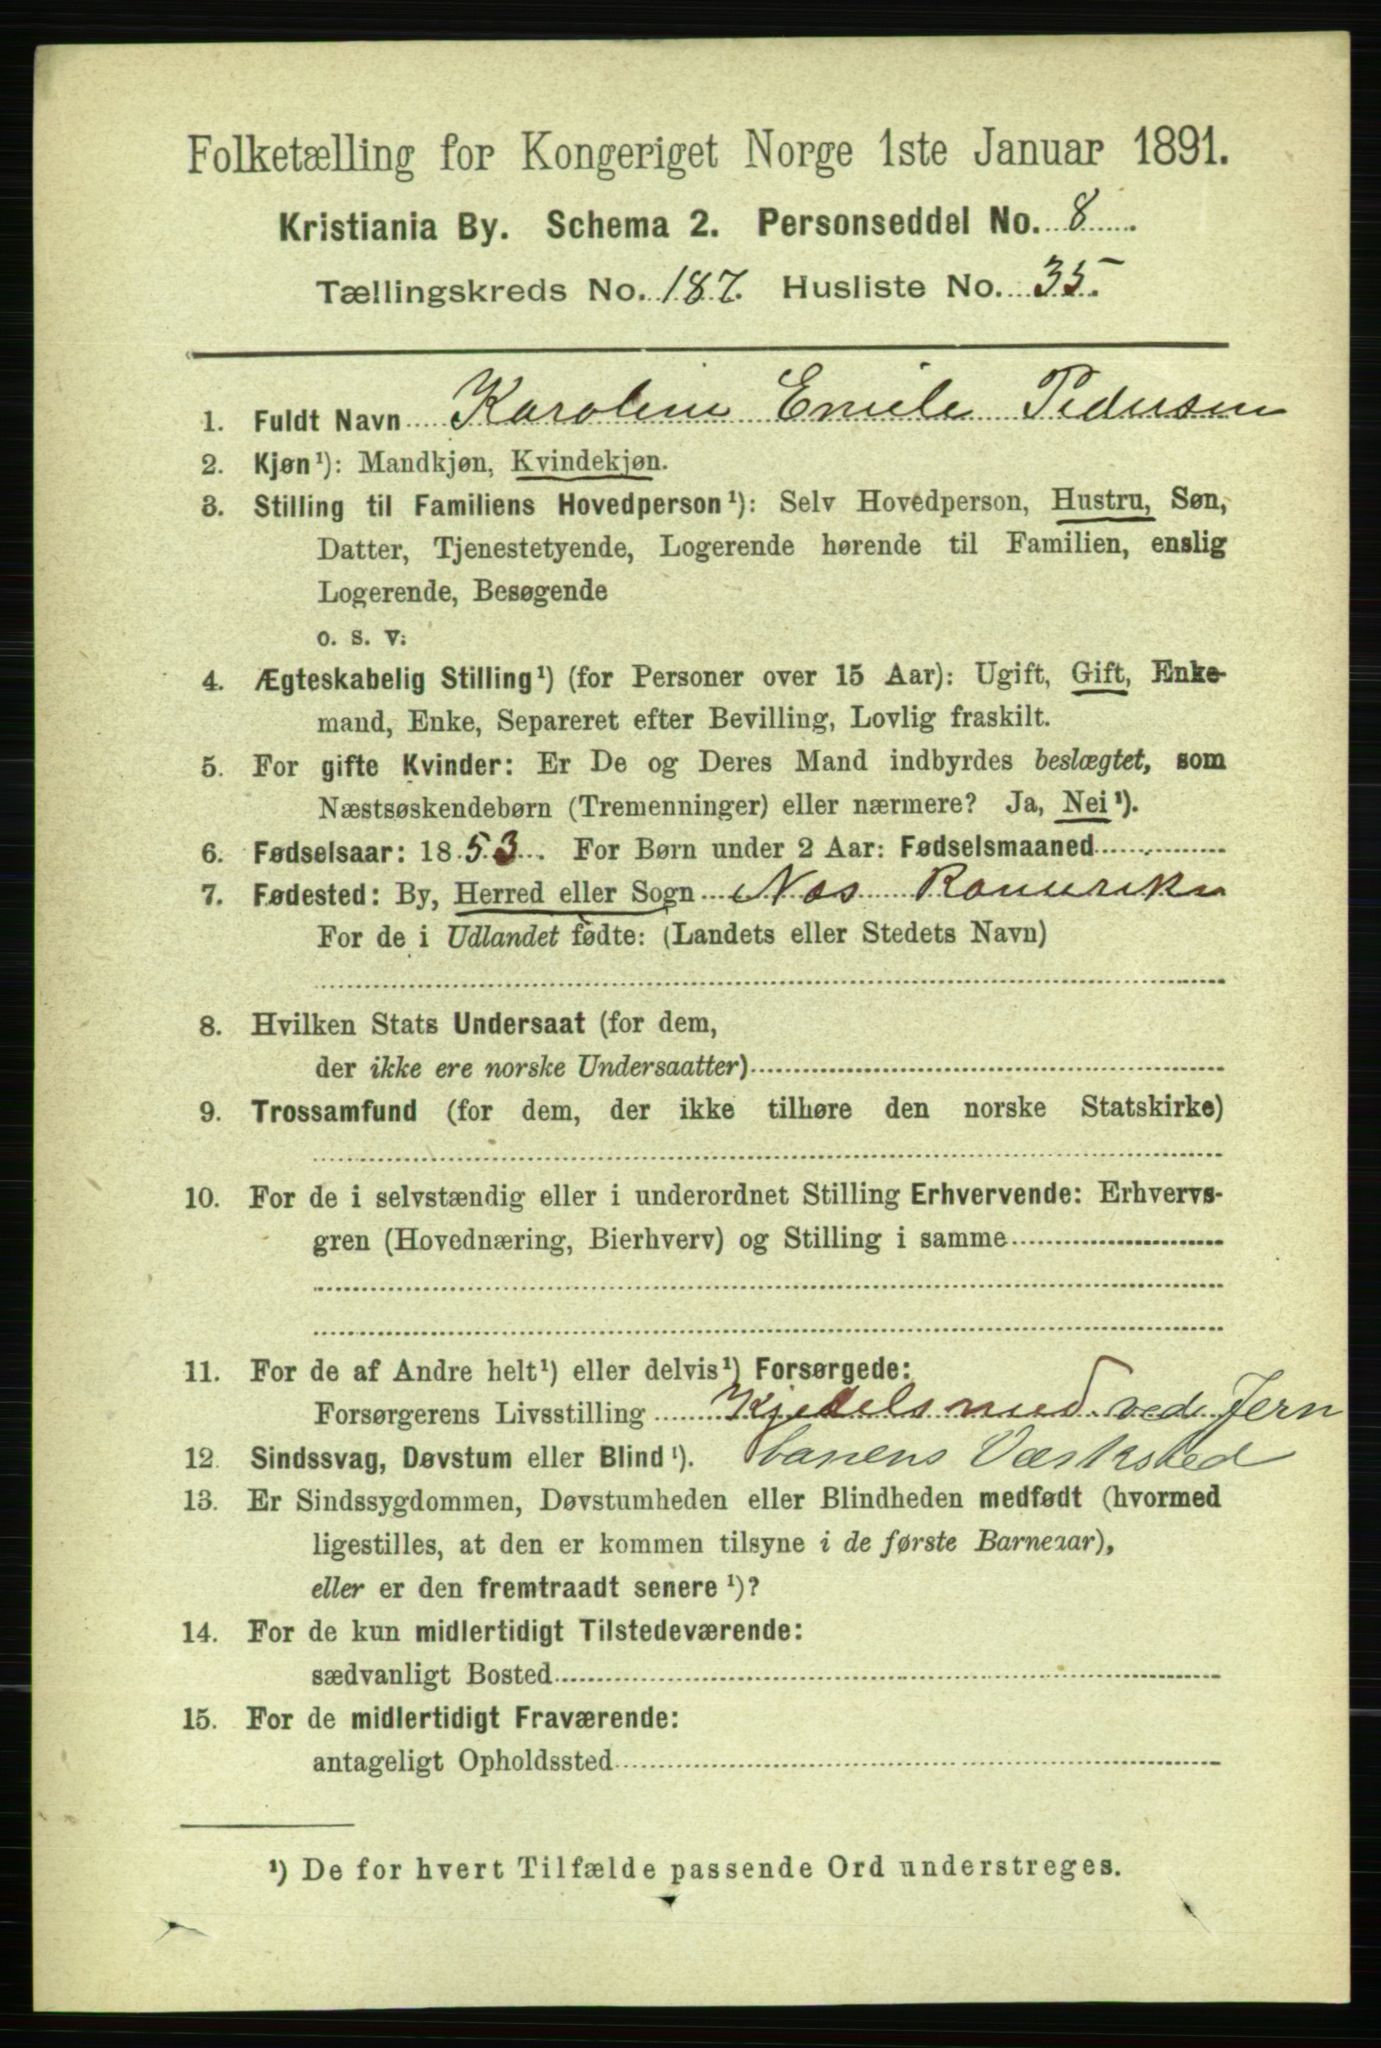 Folketælling for Kongeriget Norge 1ste Januar 1891.
Kristiania By. Schema 2. Personseddel No. 8
Tællingskreds No. 187. Husliste No. 35.
1. Fuldt Navn Karoline Emilie Pedersen
2. Kjøn¹): Mandkjøn, Kvindekjøn.
3. Stilling til Familiens Hovedperson¹): Selv Hovedperson, Hustru, Søn,
Datter, Tjenestetyende, Logerende hørende til Familien, enslig
Logerende, Besøgende
o. s. v.
4. Ægteskabelig Stilling¹) (for Personer over 15 Aar): Ugift, Gift, Enke-
mand, Enke, Separeret efter Bevilling, Lovlig fraskilt.
5. For gifte Kvinder: Er De og Deres Mand indbyrdes beslægtet, som
Næstsøskendebørn (Tremenninger) eller nærmere? Ja, Nei¹).
6. Fødselsaar: 1853. For Børn under 2 Aar: Fødselsmaaned
7. Fødested: By, Herred eller Sogn Nes Romerike
For de i Udlandet fødte: (Landets eller Stedets Navn)
8. Hvilken Stats Undersaat (for dem,
der ikke ere norske Undersaatter)
9. Trossamfund (for dem, der ikke tilhøre den norske Statskirke)
10. For de i selvstændig eller i underordnet Stilling Erhvervende: Erhvervs-
gren (Hovednæring, Bierhverv) og Stilling i samme
11. For de af Andre helt¹) eller delvis¹) Forsørgede:
Forsørgerens Livsstilling Kjedelsmed ved Jern
12. Sindssvag, Døvstum eller Blind¹). banens Værksted
13. Er Sindssygdommen, Døvstumheden eller Blindheden medfødt (hvormed
ligestilles, at den er kommen tilsyne i de første Barneaar),
eller er den fremtraadt senere¹)?
14. For de kun midlertidigt Tilstedeværende:
sædvanligt Bosted
15. For de midlertidigt Fraværende:
antageligt Opholdssted
¹) De for hvert Tilfælde passende Ord understreges.